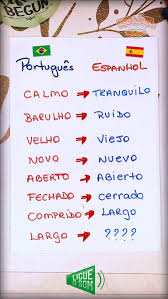 BEGUN
Português ESPANHOL
CALMO → TRANQUILO
BARULHO → RUIDO
VELHO → VIEJO
NOVO → NUEVO
ABERTO → Abierto
FECHADO → cerrado
COMPRIDO → LARGO
LARGO → ????
LIGUE
O SOM